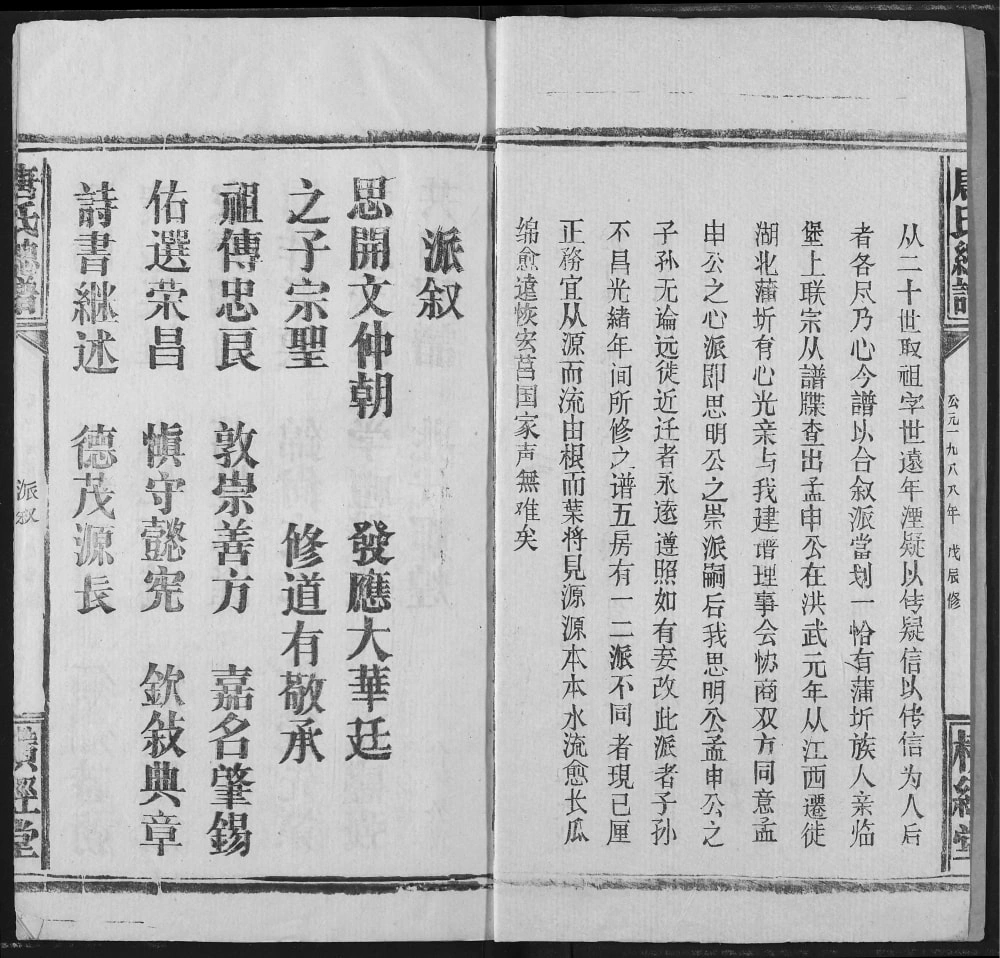 从二十世取祖字世遠年湮疑以传疑信以传信为人后
者各尽乃心今譜以合叙派當划一恰有蒲圻族人亲临
堡上联宗从譜牒查出孟申公在洪武元年从江西遷徒
湖北蒲圻有心光亲与我建谱理事会协商双方同意孟
申公之心派即思明公之崇派嗣后我思明公孟申公之
子孙无论远徒近迁者永逺遵照如有妄改此派者子孙
不昌光緒年间所修之谱五房有一二派不同者現已厘
正務宜从源而流由根而葉将見源源本本水流愈长瓜
绵愈遠恢宏莒国家声無难矣
公元一九八八年 戊辰修
派叙
思開文仲朝 發應大華廷
之子宗聖 修道有敬承
祖傳忠良 敦崇善方 嘉名肇錫
佑選荣昌 愼守懿宪 欽敍典章
詩書継述 德茂源長
派叙